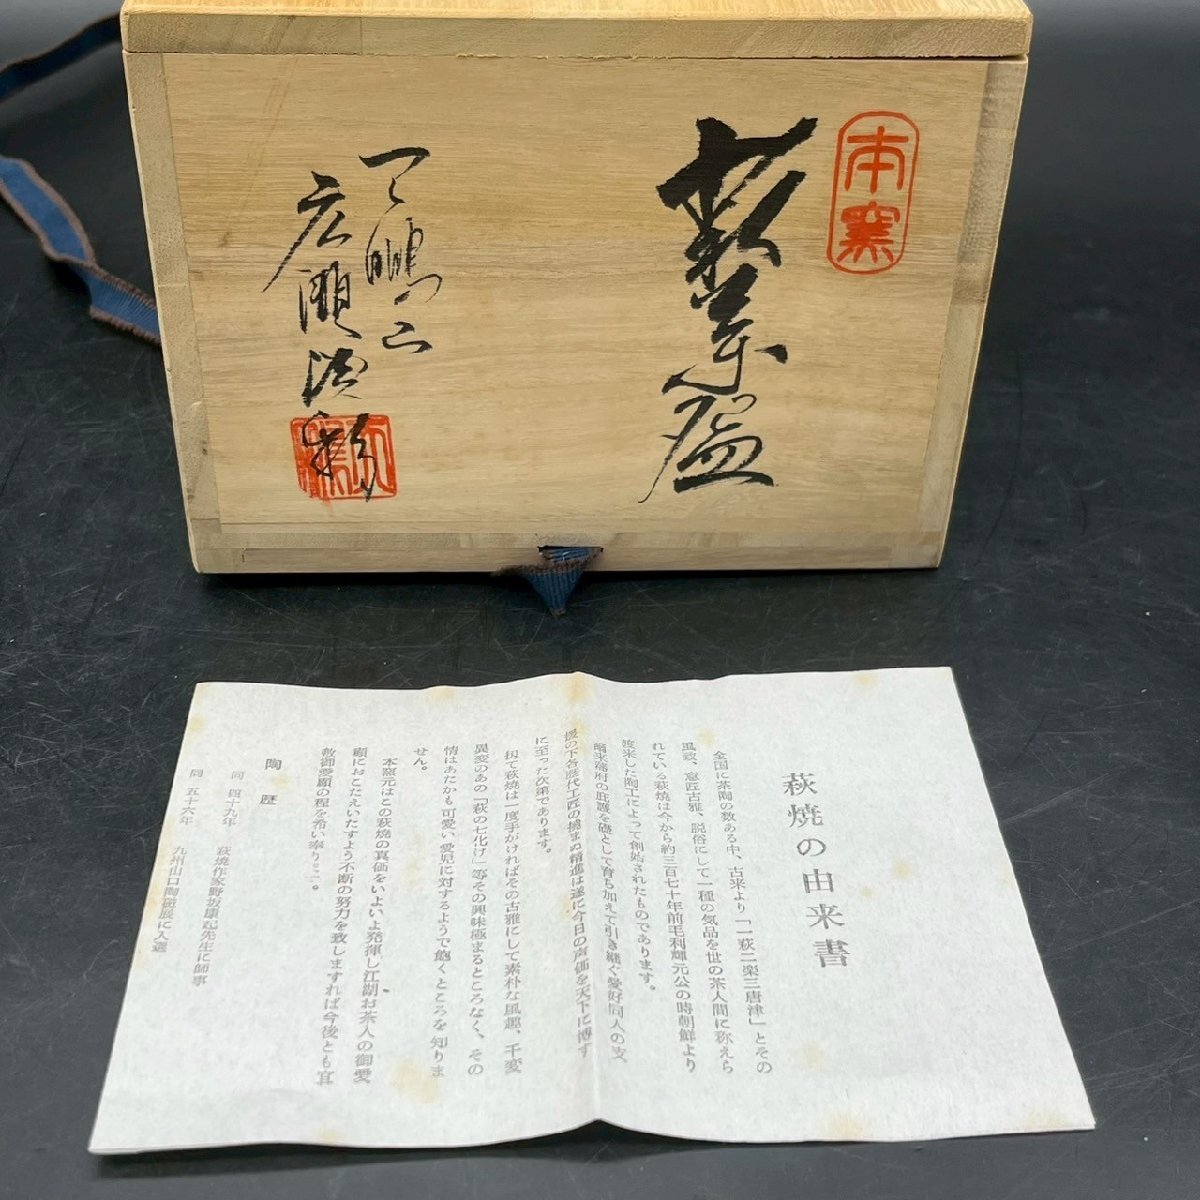 本窯
萩茶盌
天鵬山
広瀬淡彩
萩焼の由来書
全国に茶陶の数ある中、古来より「一萩二楽三唐津」とその
風致、意匠古雅、脱俗にして一種の気品を世の茶人間に称えら
れている萩焼は今から約三百七十年前毛利輝元公の時朝鮮より
渡来した陶工によって創始されたものであります。
爾来藩府の庇護を礎として育ち加えて引き継ぐ愛好同人の支
援の下各歴代工匠の撓まぬ精進は遂に今日の声価を天下に博す
に至った次第であります。
扨て萩焼は一度手がければその古雅にして素朴な風趣、千変
異変のあの「萩の七化け」等その興味極まるところなく、その
情はあたかも可愛い愛児に対するようで飽くところを知りま
せん。
本窯元はこの萩焼の真価をいよいよ発揮し江湖お茶人の御愛
顧におこたえいたすよう不断の努力を致しますれば今後とも宜
敷御愛顧の程を希い奉ります。
陶歴
同 四十九年 萩焼作家野坂康起先生に師事
同 五十六年 九州山口陶磁展に入選